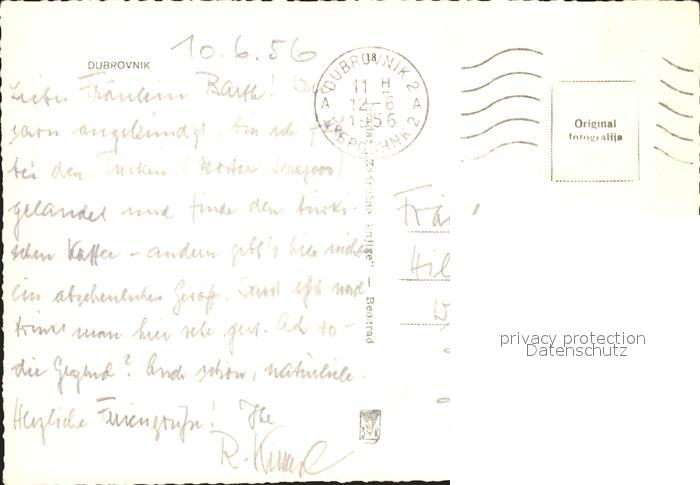 10.6.56
DUBROVNIK
Liebes Fräulein Barth! Wie
schon angekündigt, bin ich
bei den Türken (Mostar Sarajevo)
gelandet und finde den türki-
schen Kaffee – andern gibt's hier nicht
ein abscheuliches Gesöff. Sonst ißt und
trinkt man hier sehr gut. Ach so –
die Gegend? Auch schön, natürlich.
Herzliche Feriengrüße! Ihr
R.
18
DUBROVNIK 2
11 H
A 12-6 A
1956
ДУБРОВНИК 2
knjige" – Beograd
Original
fotografija
Frä
Hil
privacy protection
Datenschutz